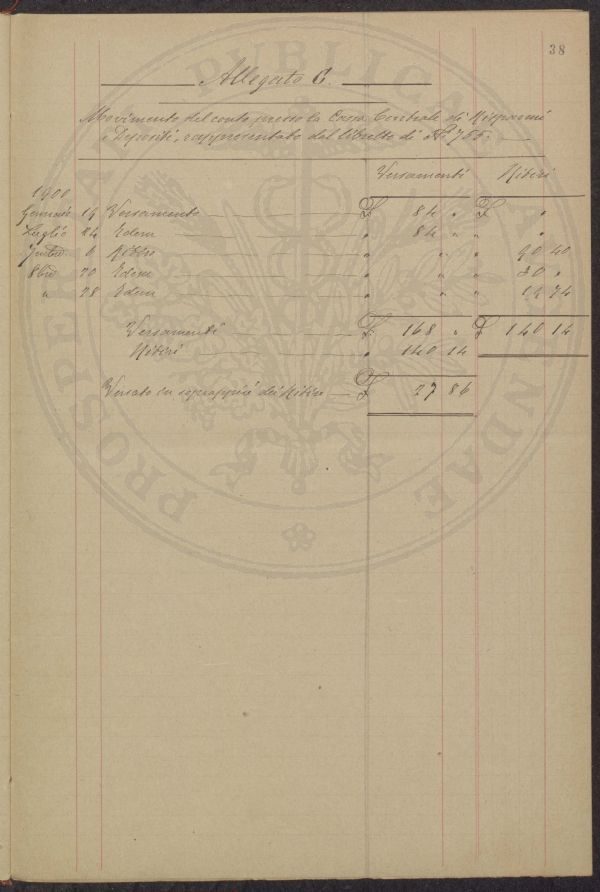 38
Allegato C.
Movimento del conto presso la Cassa Centrale di Risparmi
e Depositi, rappresentato dal libretto di N.º 755.
Versamenti Ritiri
1900
Gennaio 19 Versamento £ 84 „ £ „
Luglio 24 Idem „ 84 „ „ „
7mbre 6 Ritiro „ „ „ 90 40
8bre 20 Idem „ „ „ 30 „
„ 28 Idem „ „ „ 19 74
Versamenti £ 168 „ £ 140 14
Ritiri „ 140 14
Versato in soprappiù dei Ritiri £ 27 86
PROSPERITATI PUBLICAE AUGENDAE